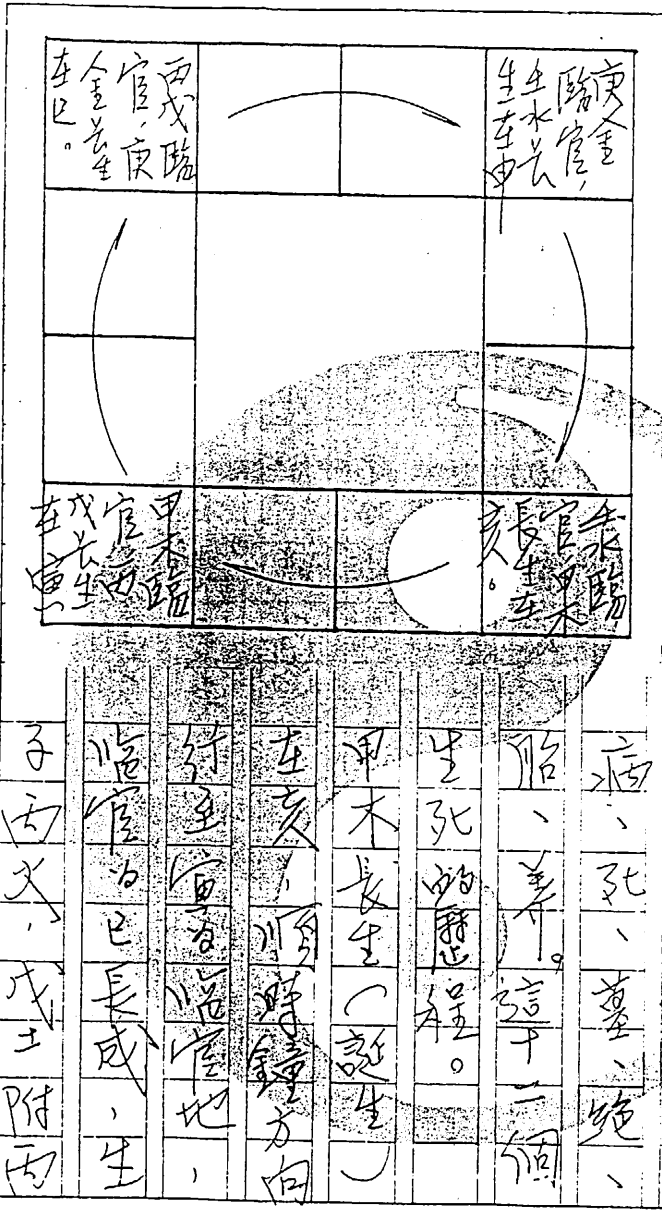 庚金
臨官，
壬水长
生在申
丙戊臨
官，庚
金长生
在巳。
壬臨
官甲木
長生在
亥。
甲木臨
官丙
戊长生
在寅
病、死、墓、絕、
胎、養。這十二個
生死的歷程。
甲木長生（誕生）
在亥，順時鐘方向
行至寅為临官地，
临官為已長成，生
子丙火，戊土附丙